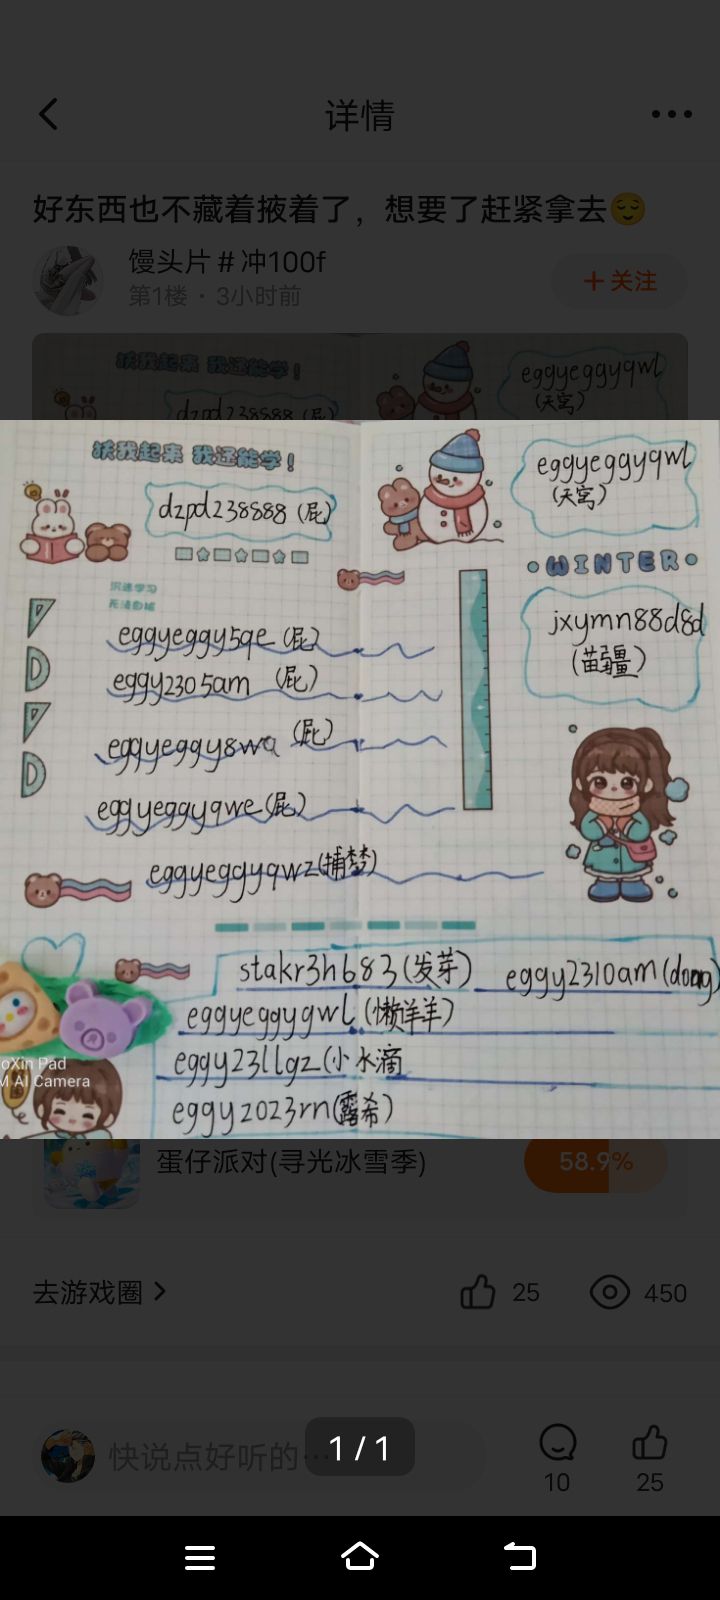 详情
好东西也不藏着掖着了，想要了赶紧拿去😌
馒头片#冲100f
第1楼·3小时前
+关注
扶我起来 我还能学！
eggyeggyqwl
(天宫)
dzpd238888 (屁)
扶我起来 我还能学！
dzpd238888 (屁)
eggyeggyqwl
(天宫)
WINTER
沉迷学习
无法自拔
jxymn88d8d
(苗疆)
eggyeggy5qe (屁)
eggy2305am (屁)
eggyeggy8wa (屁)
eggyeggyqwe (屁)
eggyeggyqwz (捕梦)
stakr3h683 (发芽)
eggy2310am (dong)
eggyeggygwl (懒羊羊)
eggy23llgz (小水滴
eggy2023rn (露希)
oXin Pad
M AI Camera
蛋仔派对(寻光冰雪季)
58.9%
去游戏圈
25
450
快说点好听的…
1 / 1
10
25